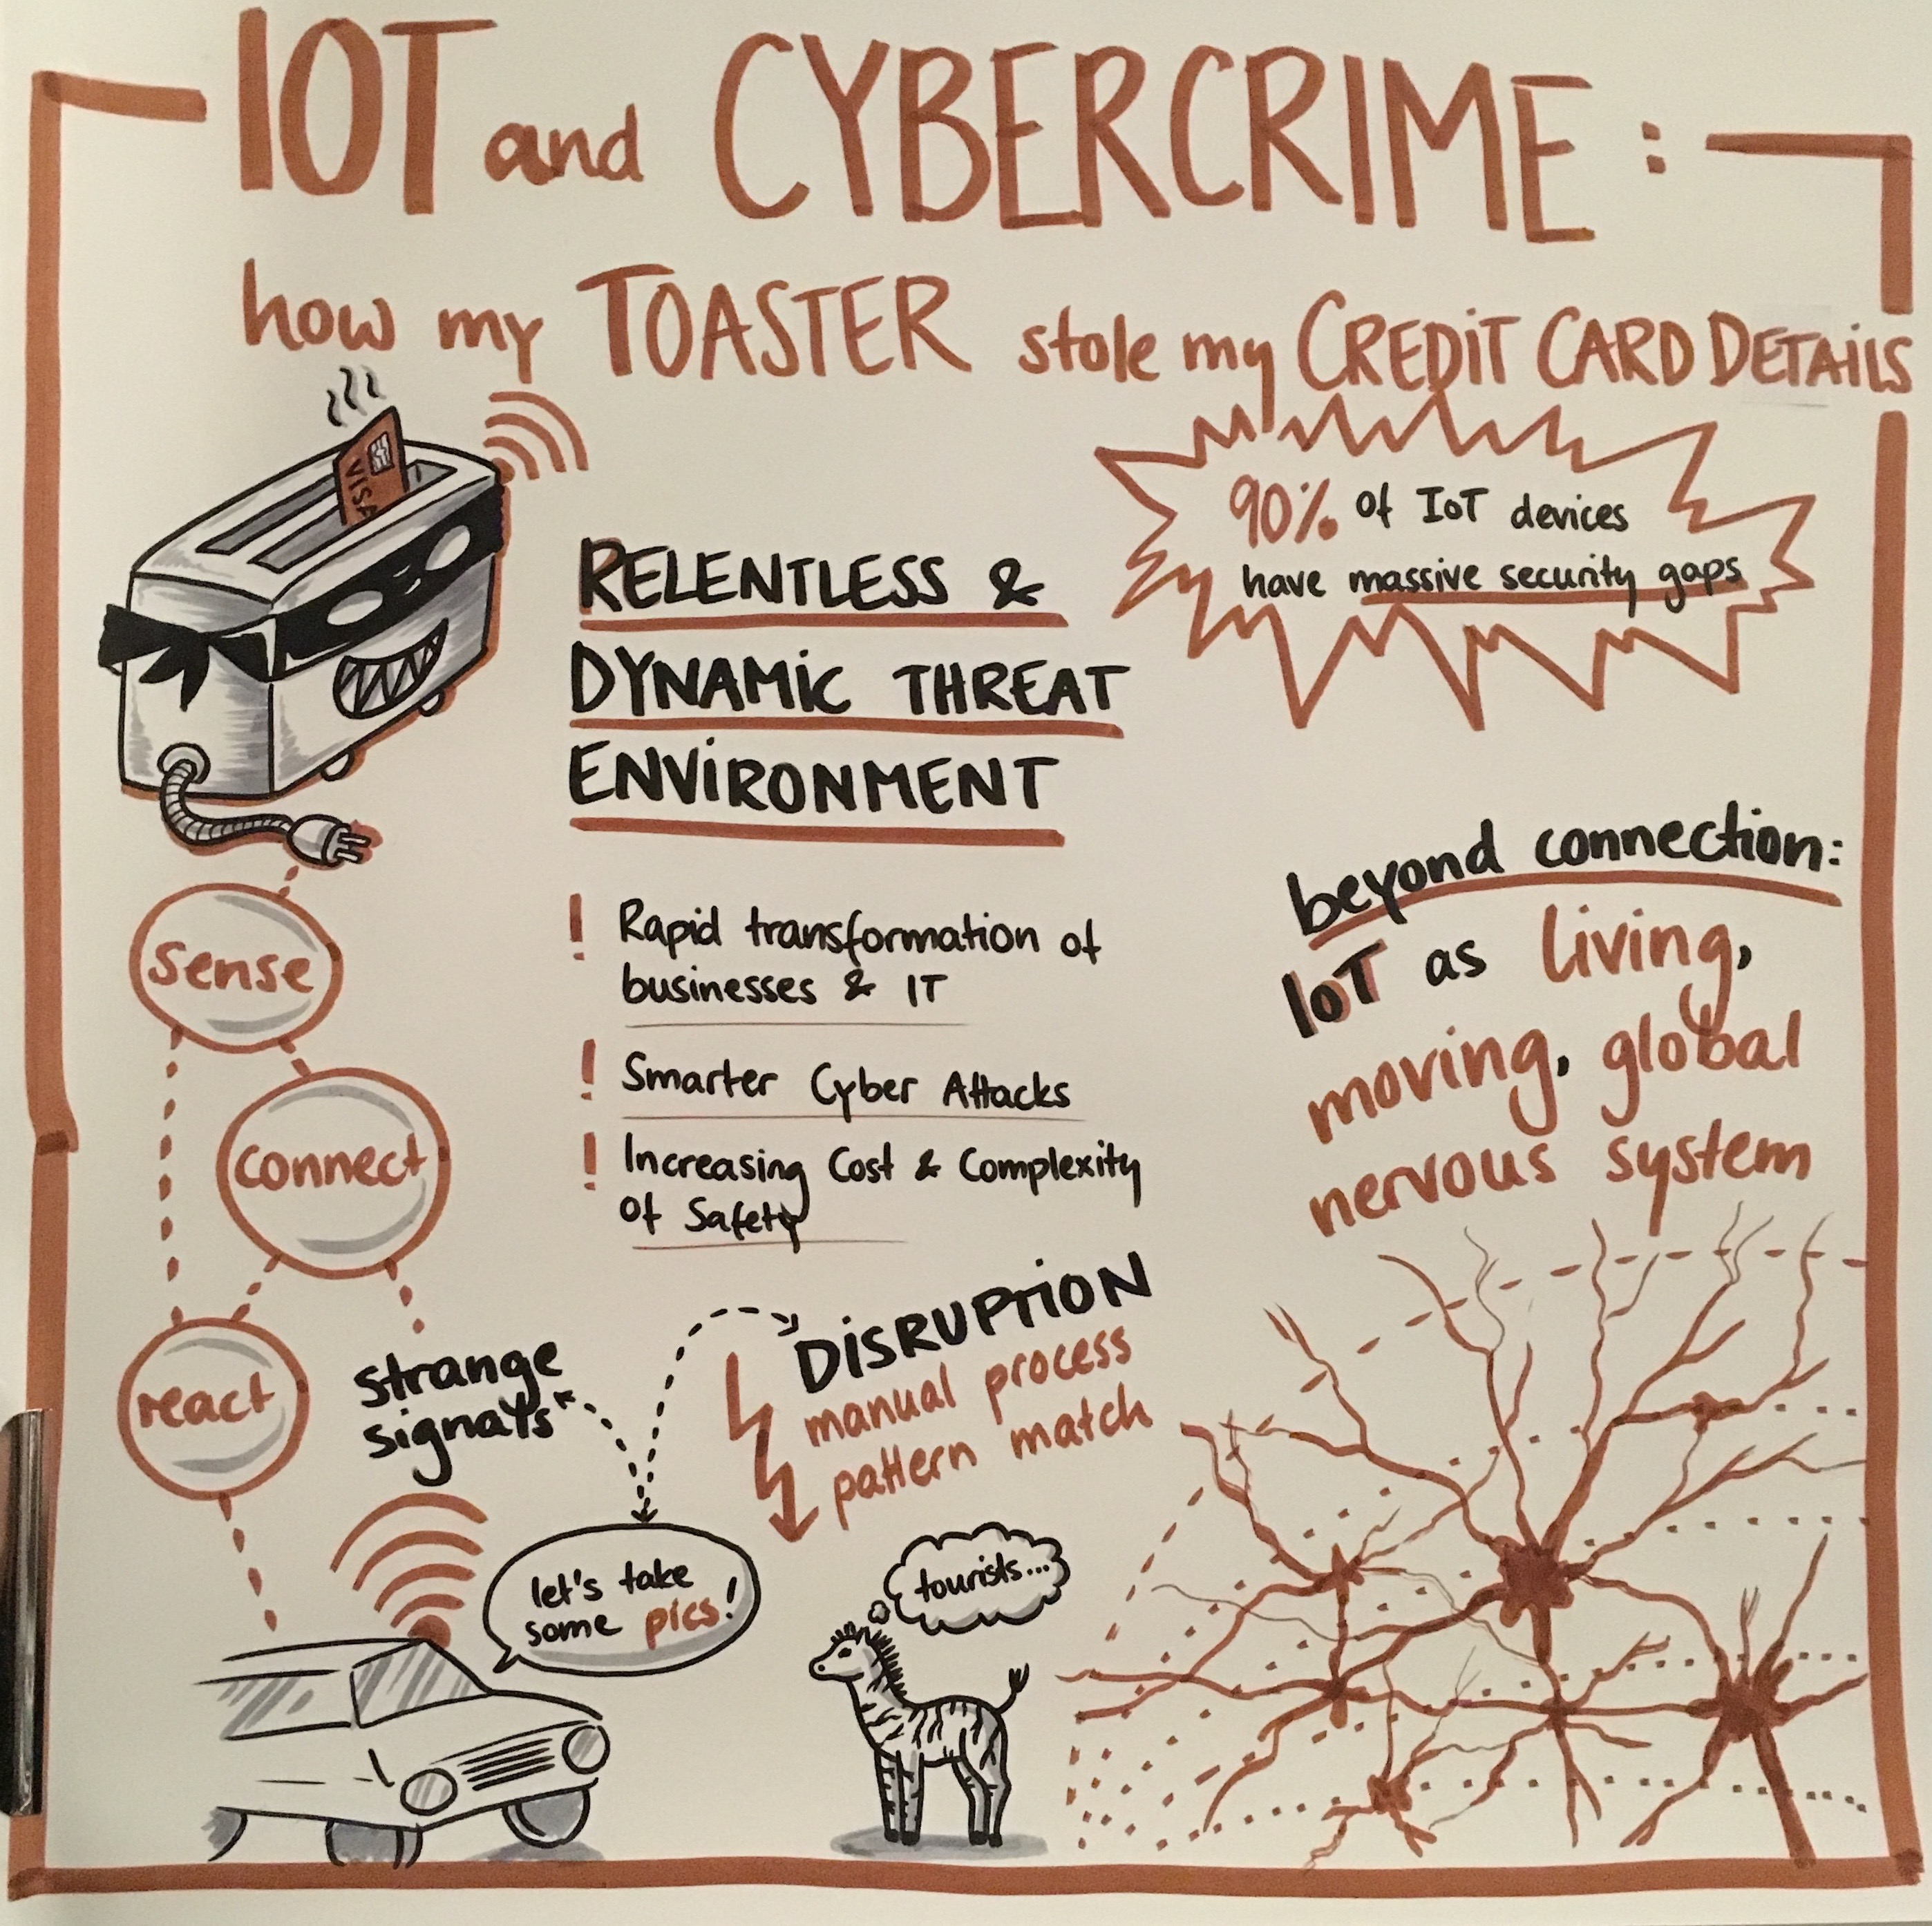 IOT and CYBERCRIME:
how my TOASTER stole my CREDIT CARD DETAILS
VISA
90% of IoT devices
have massive security gaps
RELENTLESS &
DYNAMIC THREAT
ENVIRONMENT
! Rapid transformation of
businesses & IT
! Smarter Cyber Attacks
! Increasing Cost & Complexity
of Safety
beyond connection:
IoT as living,
moving, global
nervous system
sense
connect
react
strange
signals
DISRUPTION
manual process
pattern match
let's take
some pics!
tourists...